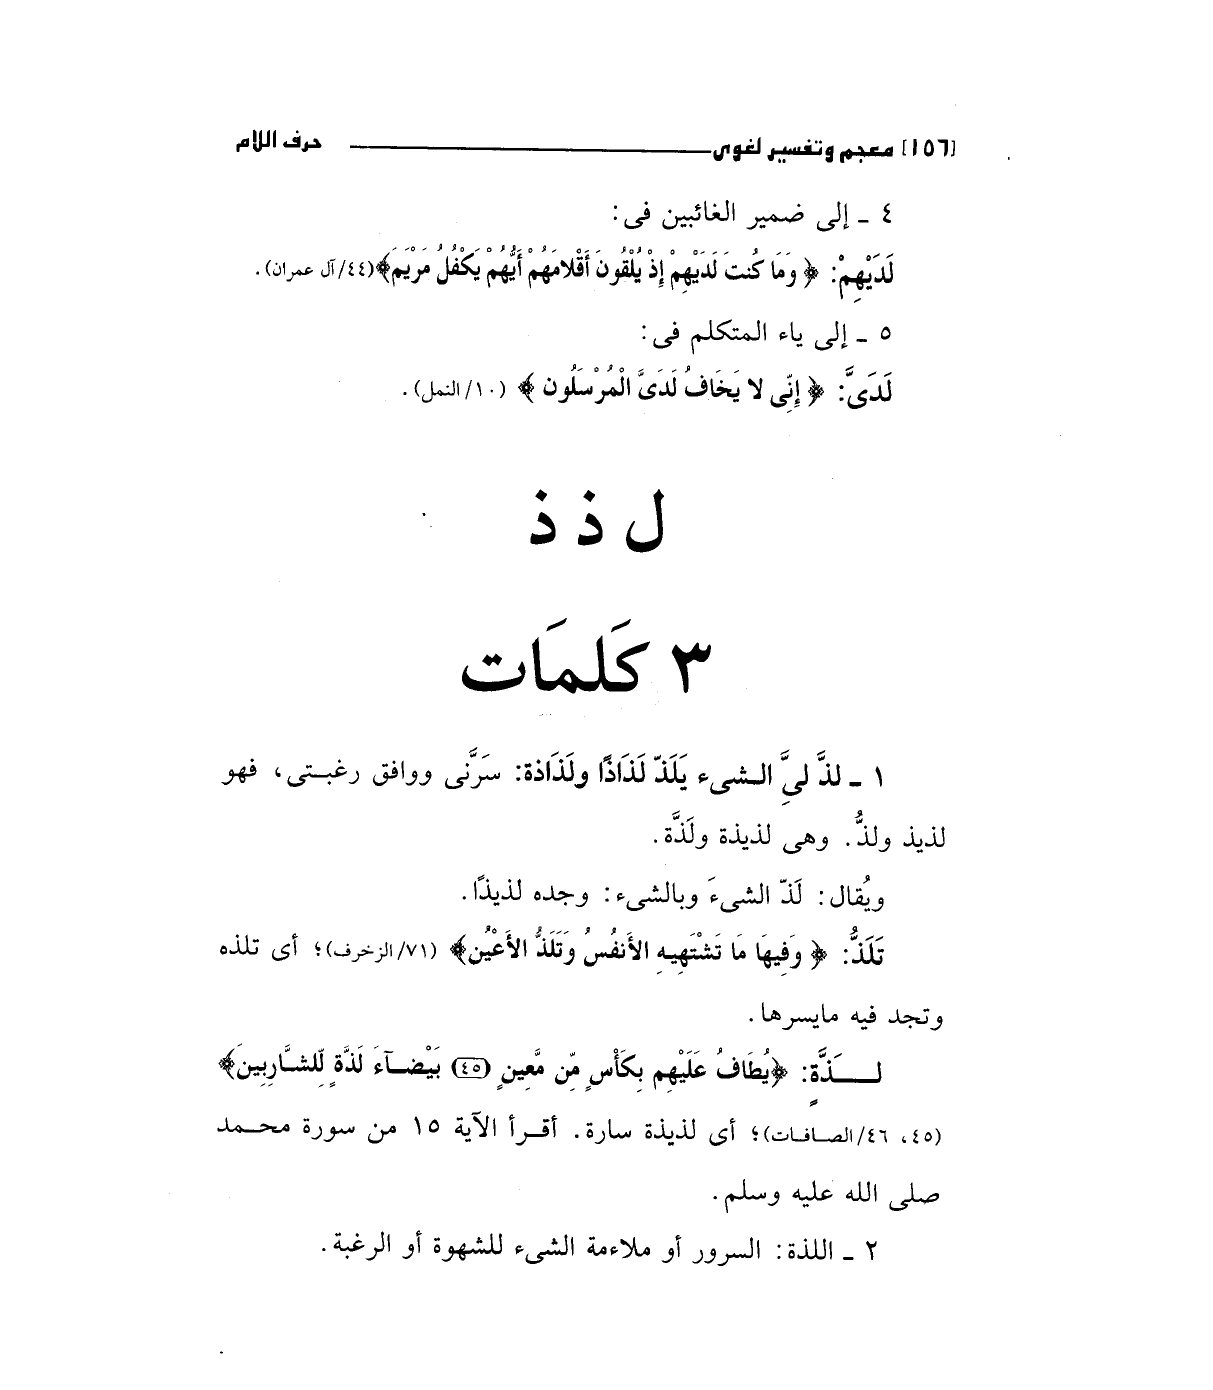 [١٥٦] معجم وتفسير لغوى ــــــــ حرف اللام
٤ ـ إلى ضمير الغائبين فى:
لَدَيْهِمْ: ﴿ وَمَا كُنتَ لَدَيْهِمْ إِذْ يُلْقُونَ أَقْلامَهُمْ أَيُّهُمْ يَكْفُلُ مَرْيَمَ﴾(٤٤/آل عمران).
٥ ـ إلى ياء المتكلم فى:
لَدَىَّ: ﴿ إِنِّى لا يَخَافُ لَدَىَّ الْمُرْسَلُون ﴾ (١٠/النمل).
ل ذ ذ
٣ كَلمَات
١ ـ لذَّ لىِ الـشىء يَلَذّ لَذَاذًا ولَذَاذة: سَرَّنى ووافق رغبـتى، فهو
لذيذ ولذٌّ. وهى لذيذة ولَذَّة.
ويُقال: لَذّ الشىءَ وبالشىء: وجده لذيذًا.
تَلَذُّ: ﴿ وَفِيهَا مَا تَشْتَهِيهِ الأَنفُسُ وَتَلَذُّ الأَعْيُن﴾ (٧١/الزخرف)؛ أى تلذه
وتجد فيه مايسرها.
لـــــذَّةٍ: ﴿يُطَافُ عَلَيْهِم بِكَأْسٍ مِّن مَّعِينٍ (٤٥) بَيْضَـآءَ لَذَّةٍ لِّلشَّارِبِينَ﴾
(٤٥، ٤٦/الصـافـات)؛ أى لذيذة سارة. أقـرأ الآية ١٥ من سورة محـمـد
صلى الله عليه وسلم.
٢ ـ اللذة: السرور أو ملاءمة الشىء للشهوة أو الرغبة.